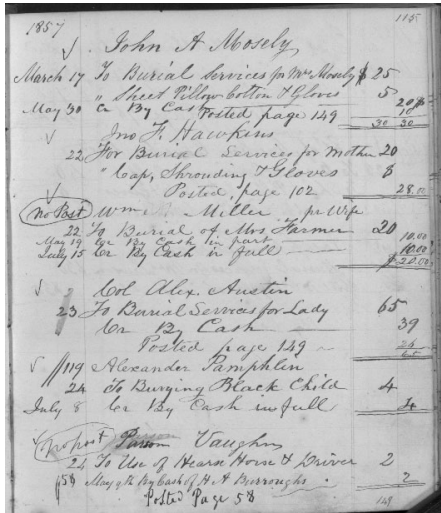 1857 115
John A Mosely
March 17 To Burial Services for Mrs Mosely $ 25
" Sheet Pillow Cotton & Gloves 5
May 30 Cr By Cash 20
Posted page 149 10
30 30
Jno F. Hawkins
22 For Burial Services for Mother 20
" Cap, Shrouding & Gloves 8
Posted, page 102 28.00
No Post Wm Miller pr Wife
22 To Burial of Mrs Farmer 20
May 19 Cr By Cash in part 10.00
July 15 Cr By Cash in full 10.00
$20.00
Col Alex. Austin
23 To Burial Services for Lady 65
Cr By Cash 39
Posted page 149 26
119 Alexander Pamphlin
24 To Burying Black Child 4
July 8 Cr By Cash in full 4
no post Parson Vaughn
24 To Use of Hearse Horse & Driver 2
p58 May 9th By Cash of H A Burroughs 2
Posted Page 58 149